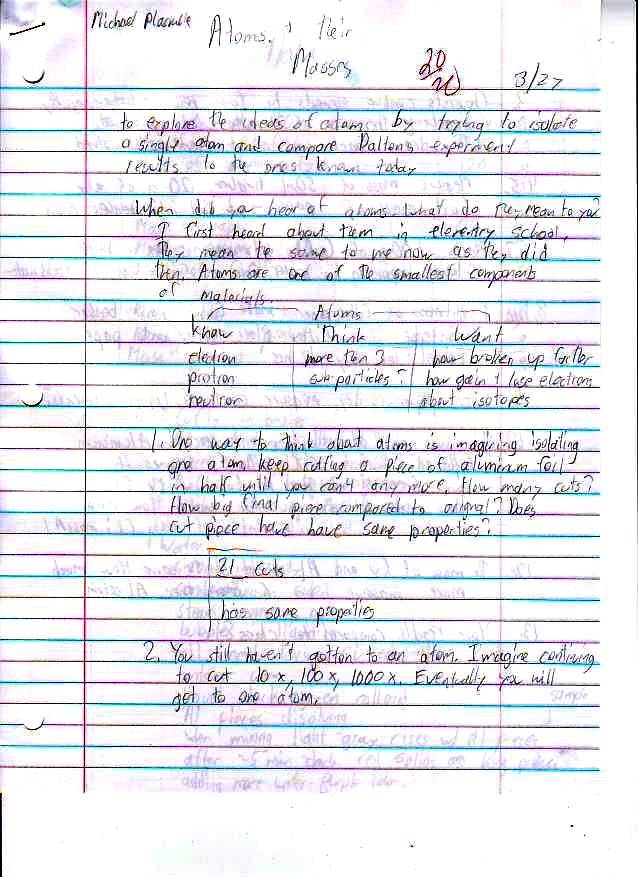 Michael
Atoms, + their
Masses
20/20
3/27
to explore the ideas of atom by trying to isolate
a single atom and compare Dalton's experiment
results to the ones known today
When did you hear of atoms what do they mean to you?
I first heard about them in elementry school,
they mean the same to me now as they did
then. Atoms are one of the smallest components
of materials.
Atoms
know Think want
electron more then 3 how broken up further
protron sub-particles? how gain + lose electrons
neutron about isotopes
1. One way to think about atoms is imagining isolating
one atom, keep cutting a piece of aluminum foil
in half until you can't any more. How many cuts?
How big final piece compared to original? Does
cut piece have have same properties?
21 cuts
has same properties
2. You still haven't gotton to an atom. Imagine contining
to cut 10x, 100x, 1000x. Eventually you will
get to one atom.